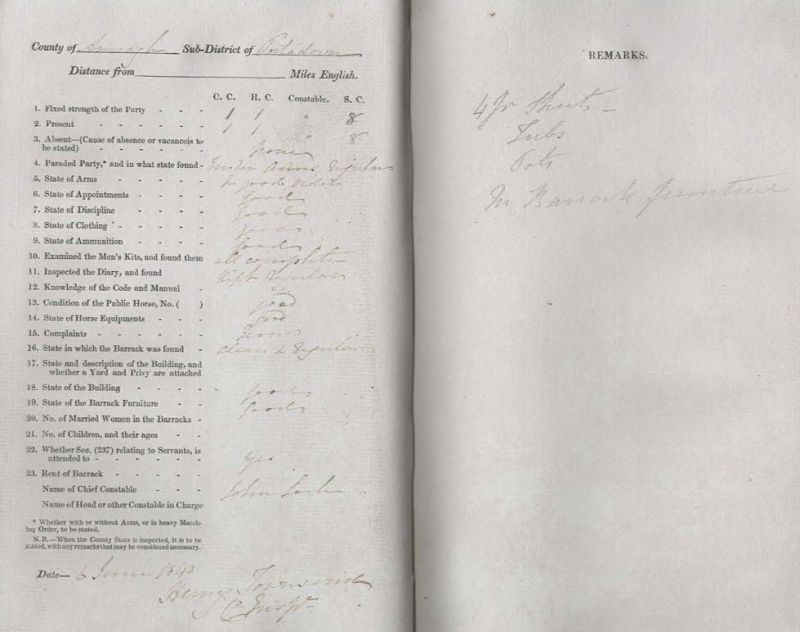 County of Armagh Sub-District of Portadown
Distance from Miles English.
C. C. H. C. Constable. S. C.
1. Fixed strength of the Party - - - 1 1 " 8
2. Present - - - - - - 1 1 " 8
3. Absent—(Cause of absence or vacancies to
be stated) - - - - - None
4. Paraded Party,* and in what state found - Under Arms Regular
5. State of Arms - - - - - In good order
6. State of Appointments - - - - good
7. State of Discipline - - - - good
8. State of Clothing - - - - good
9. State of Ammunition - - - - good
10. Examined the Men's Kits, and found them all complete
11. Inspected the Diary, and found Kept Regular
12. Knowledge of the Code and Manual -
13. Condition of the Public Horse, No. ( ) good
14. State of Horse Equipments - - - good
15. Complaints - - - - - - None
16. State in which the Barrack was found - Clean & Regular
17. State and description of the Building, and
whether a Yard and Privy are attached
18. State of the Building - - - - good
19. State of the Barrack Furniture - - good
20. No. of Married Women in the Barracks -
21. No. of Children, and their ages - -
22. Whether Sec. (237) relating to Servants, is
attended to - - - - - - yes
23. Rent of Barrack - - - - -
Name of Chief Constable - - - John
Name of Head or other Constable in Charge
* Whether with or without Arms, or in heavy March-
ing Order, to be stated.
N.B.—When the County State is inspected, it is to be
stated, with any remarks that may be considered necessary.
Date— 6 June
Henry Townsend
REMARKS.
4 Sheets
Tubs
Pots
In Barrack furniture